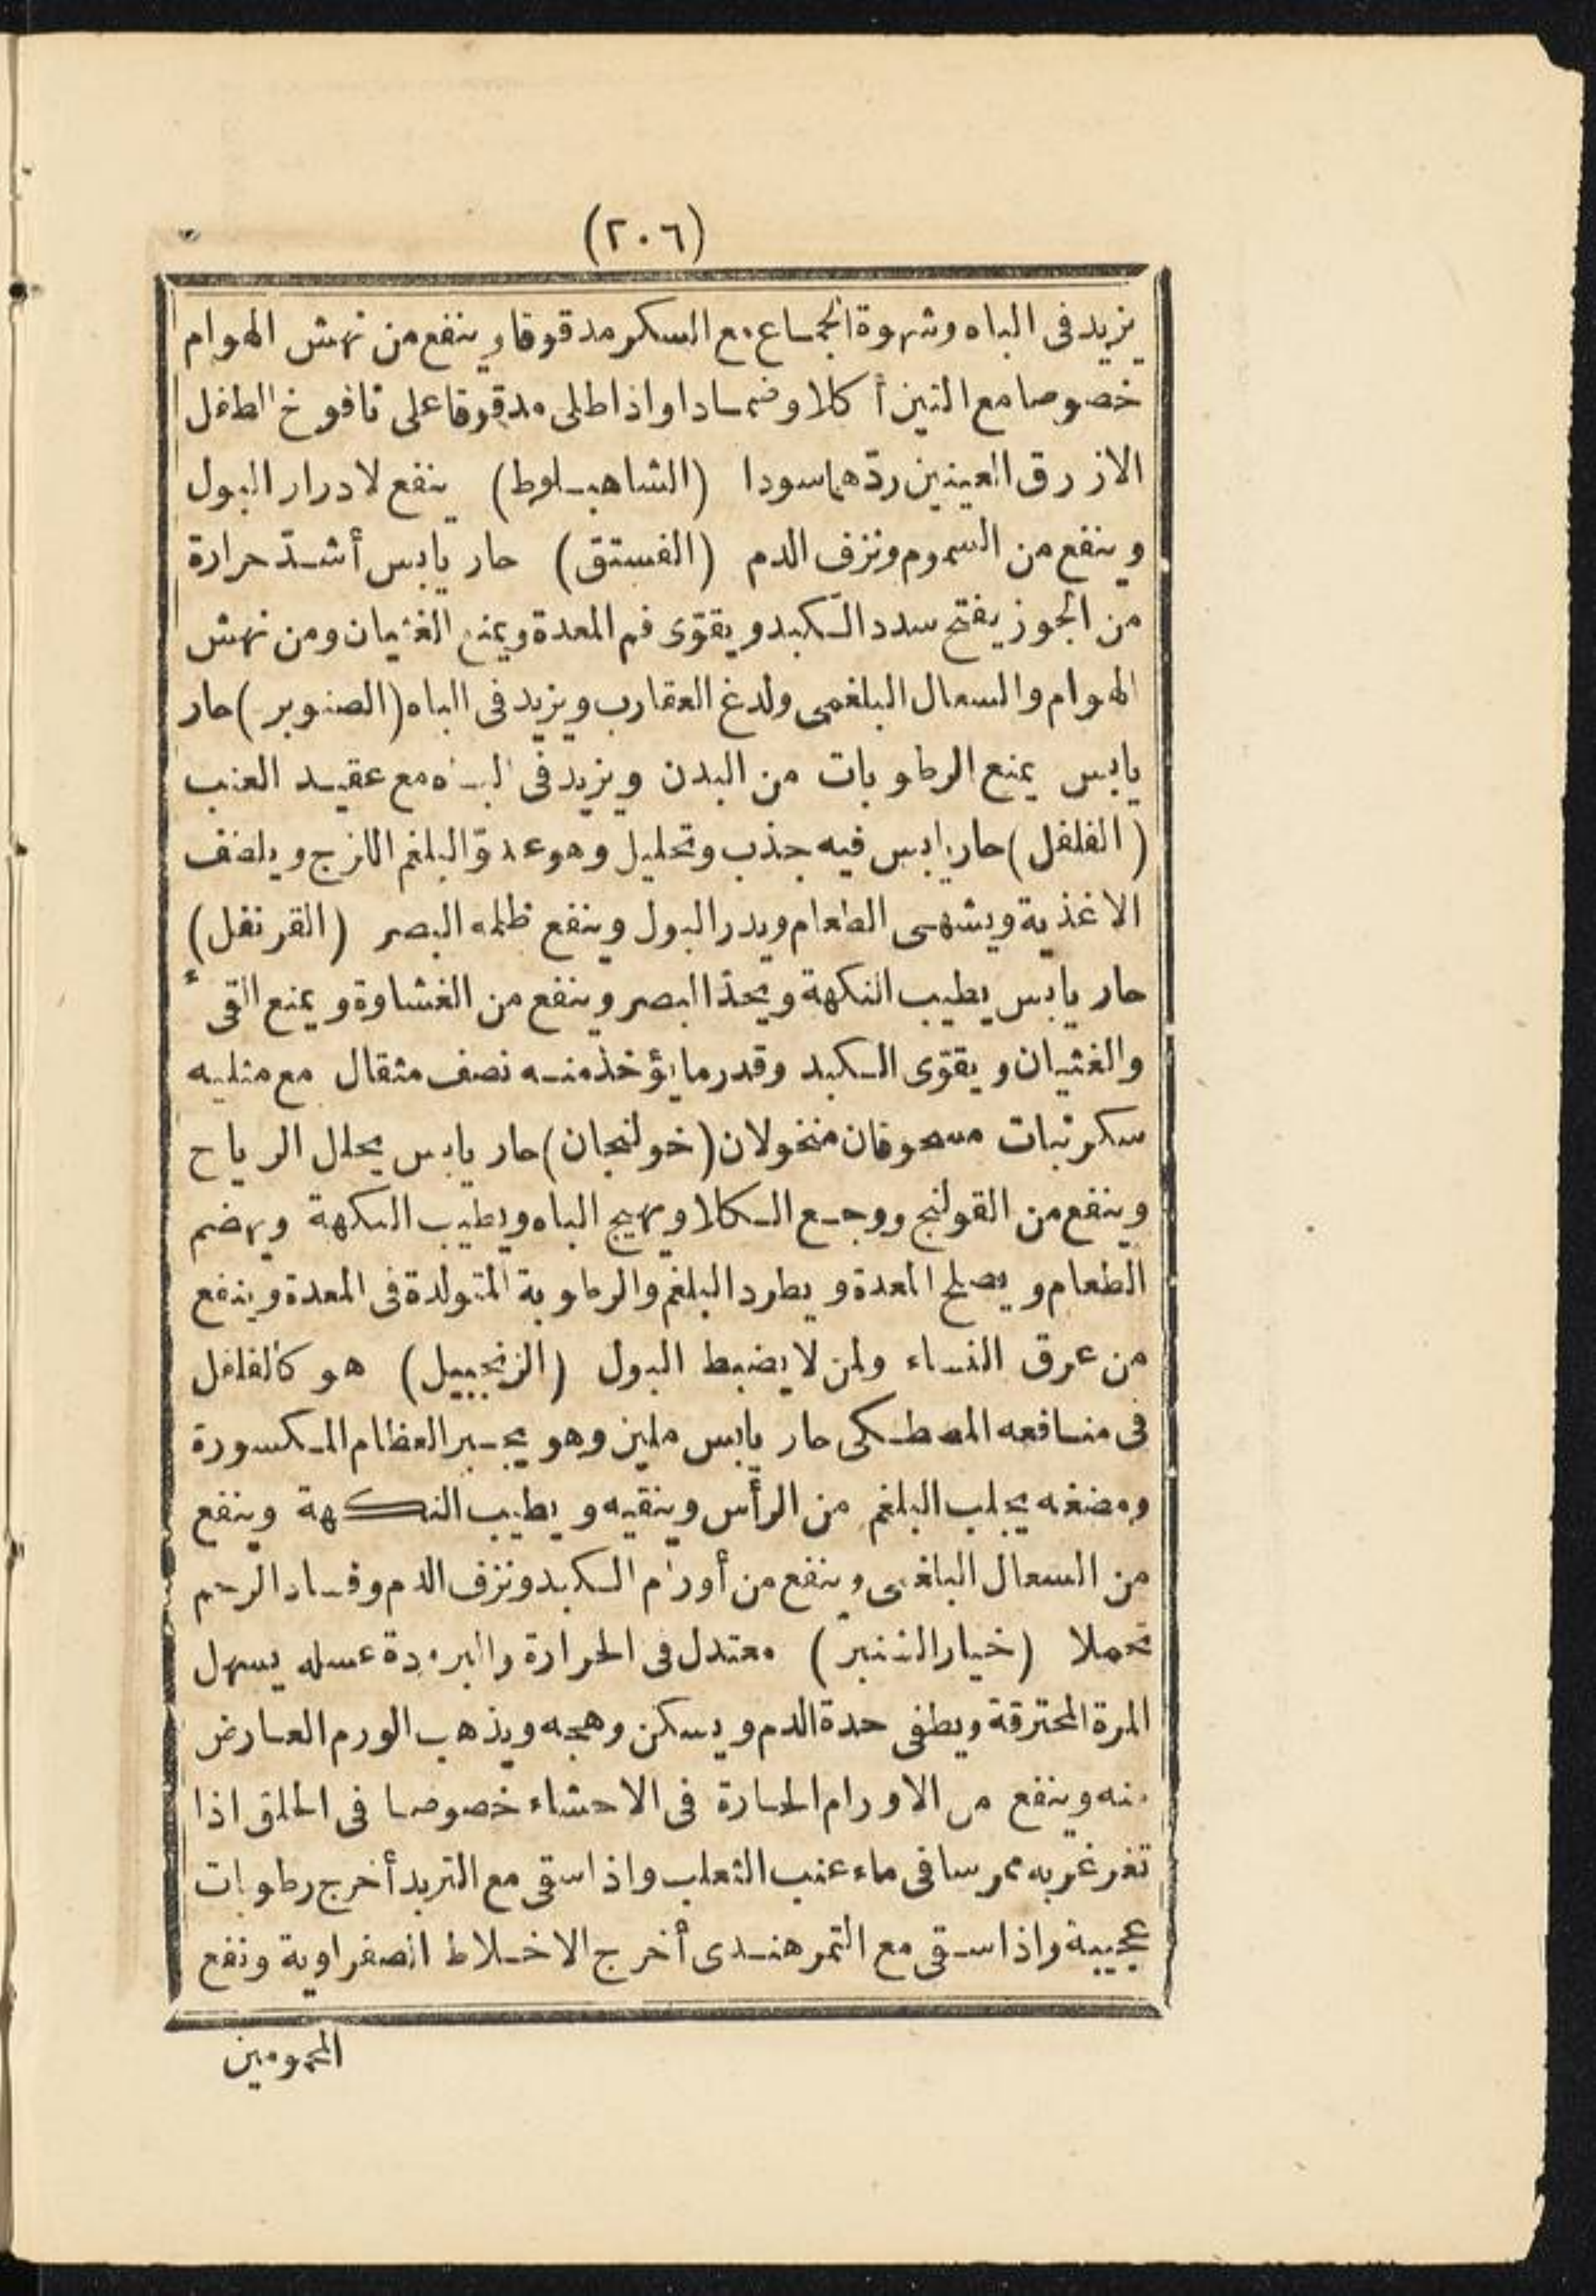 (٢٠٦)
يزيد فى الباه وشهوة الجماع مع السكر مدقوقا وينفع من نهش الهوام
خصوصا مع التين أكلا وضمادا واذا طلى مدقوقا على نافوخ الطفل
الازرق العينين ردّهما سودا (الشاهبلوط) ينفع لادرار البول
وينفع من السموم ونزف الدم (الفستق) حار يابس أشدّ حرارة
من الجوز يفتح سدد الكبد ويقوّى فم المعدة ويمنع الغثيان ومن نهش
الهوام والسعال البلغمى ولدغ العقارب ويزيد فى الباه (الصنوبر) حار
يابس يمنع الرطوبات من البدن ويزيد فى الباه مع عقيد العنب
(الفلفل) حار يابس فيه جذب وتحليل وهو عدوّ البلغم اللزج ويلطف
الاغذية ويشهى الطعام ويدر البول وينفع ظلمة البصر (القرنفل)
حار يابس يطيب النكهة ويحدّ البصر وينفع من الغشاوة ويمنع القىء
والغثيان ويقوّى الكبد وقدر ما يؤخذ منه نصف مثقال مع مثليه
سكر نبات مسحوقان منخولان (خولنجان) حار يابس يحلل الرياح
وينفع من القولنج ووجع الكلا ويهيج الباه ويطيب النكهة ويهضم
الطعام ويصلح المعدة ويطرد البلغم والرطوبة المتولدة فى المعدة وينفع
من عرق النساء ولمن لا يضبط البول (الزنجبيل) هو كالفلفل
فى منافعه المصطكى حار يابس ملين وهو يجبر العظام المكسورة
ومضغه يجلب البلغم من الرأس وينقيه ويطيب النكهة وينفع
من السعال البلغمى وينفع من أورام الكبد ونزف الدم وفساد الرحم
تحملا (خيار الشنبر) معتدل فى الحرارة والبرودة عسله يسهل
المرة المحترقة ويطفى حدة الدم ويسكن وهجه ويذهب الورم العارض
منه وينفع من الاورام الحارة فى الاحشاء خصوصا فى الحلق اذا
تغرغر به ممرسا فى ماء عنب الثعلب واذا سقى مع التربد أخرج رطوبات
عجيبة واذا سقى مع التمر هندى أخرج الاخلاط الصفراوية ونفع
المحمومين